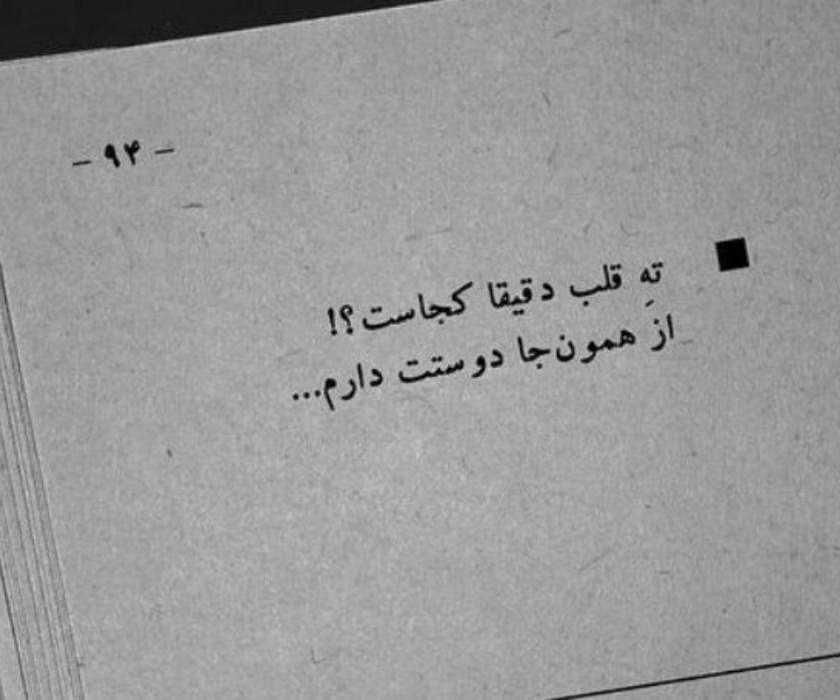 - ۹۴ -
■ تهِ قلب دقیقا کجاست؟!
از همون‌جا دوستت دارم...